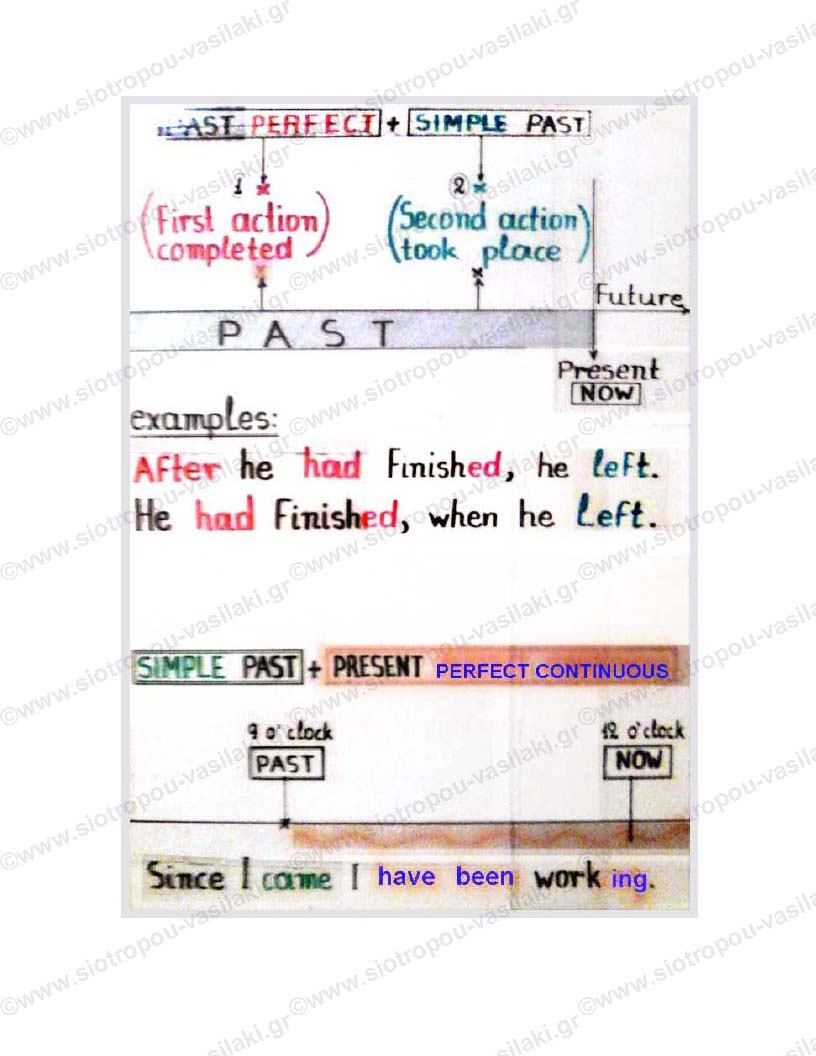 PAST PERFECT + SIMPLE PAST
1 2
(First action completed)
(Second action took place)
Future
PAST
Present
NOW
examples:
After he had finished, he left.
He had Finished, when he left.
SIMPLE PAST + PRESENT PERFECT CONTINUOUS
9 o'clock 12 o'clock
PAST NOW
Since I came I have been working.
©www.siotropou-vasilaki.gr